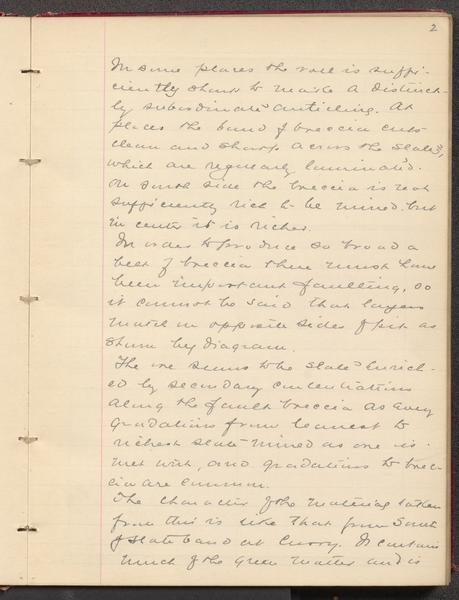 2
In some places the roll is suffi-
ciently sharp to make a distinct-
ly subordinate anticline. At
places the band of breccia cuts
clean and sharp across the slates,
which are regularly laminated.
On south side the breccia is not
sufficiently rich to be mined but
in center it is richer.
In order to produce so broad a
belt of breccia there must have
been important faulting, so
it cannot be said that layers
match on opposite sides of pit as
shown by diagram.
The ore seems to be slates enrich-
ed by secondary concentrations
along the fault breccia as every
gradation from leanest to
richest slate mined as ore is
met with, and gradations to brec-
cia are common.
The character of the material taken
from this is like that from South
of slate band at Curry. It contains
much of the green matter and is